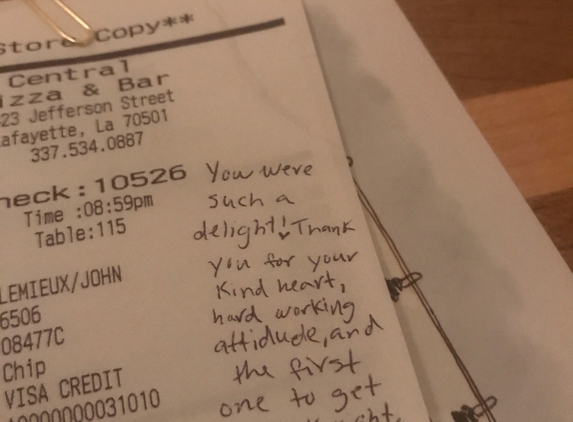 Store Copy**
Central
izza & Bar
23 Jefferson Street
afayette, La 70501
337.534.0887
heck:10526
Time :08:59pm
Table:115
LEMIEUX/JOHN
6506
08477C
Chip
VISA CREDIT
You were
such a
delight! Thank
you for your
kind heart,
hard working
attidude, and
the first
one to get